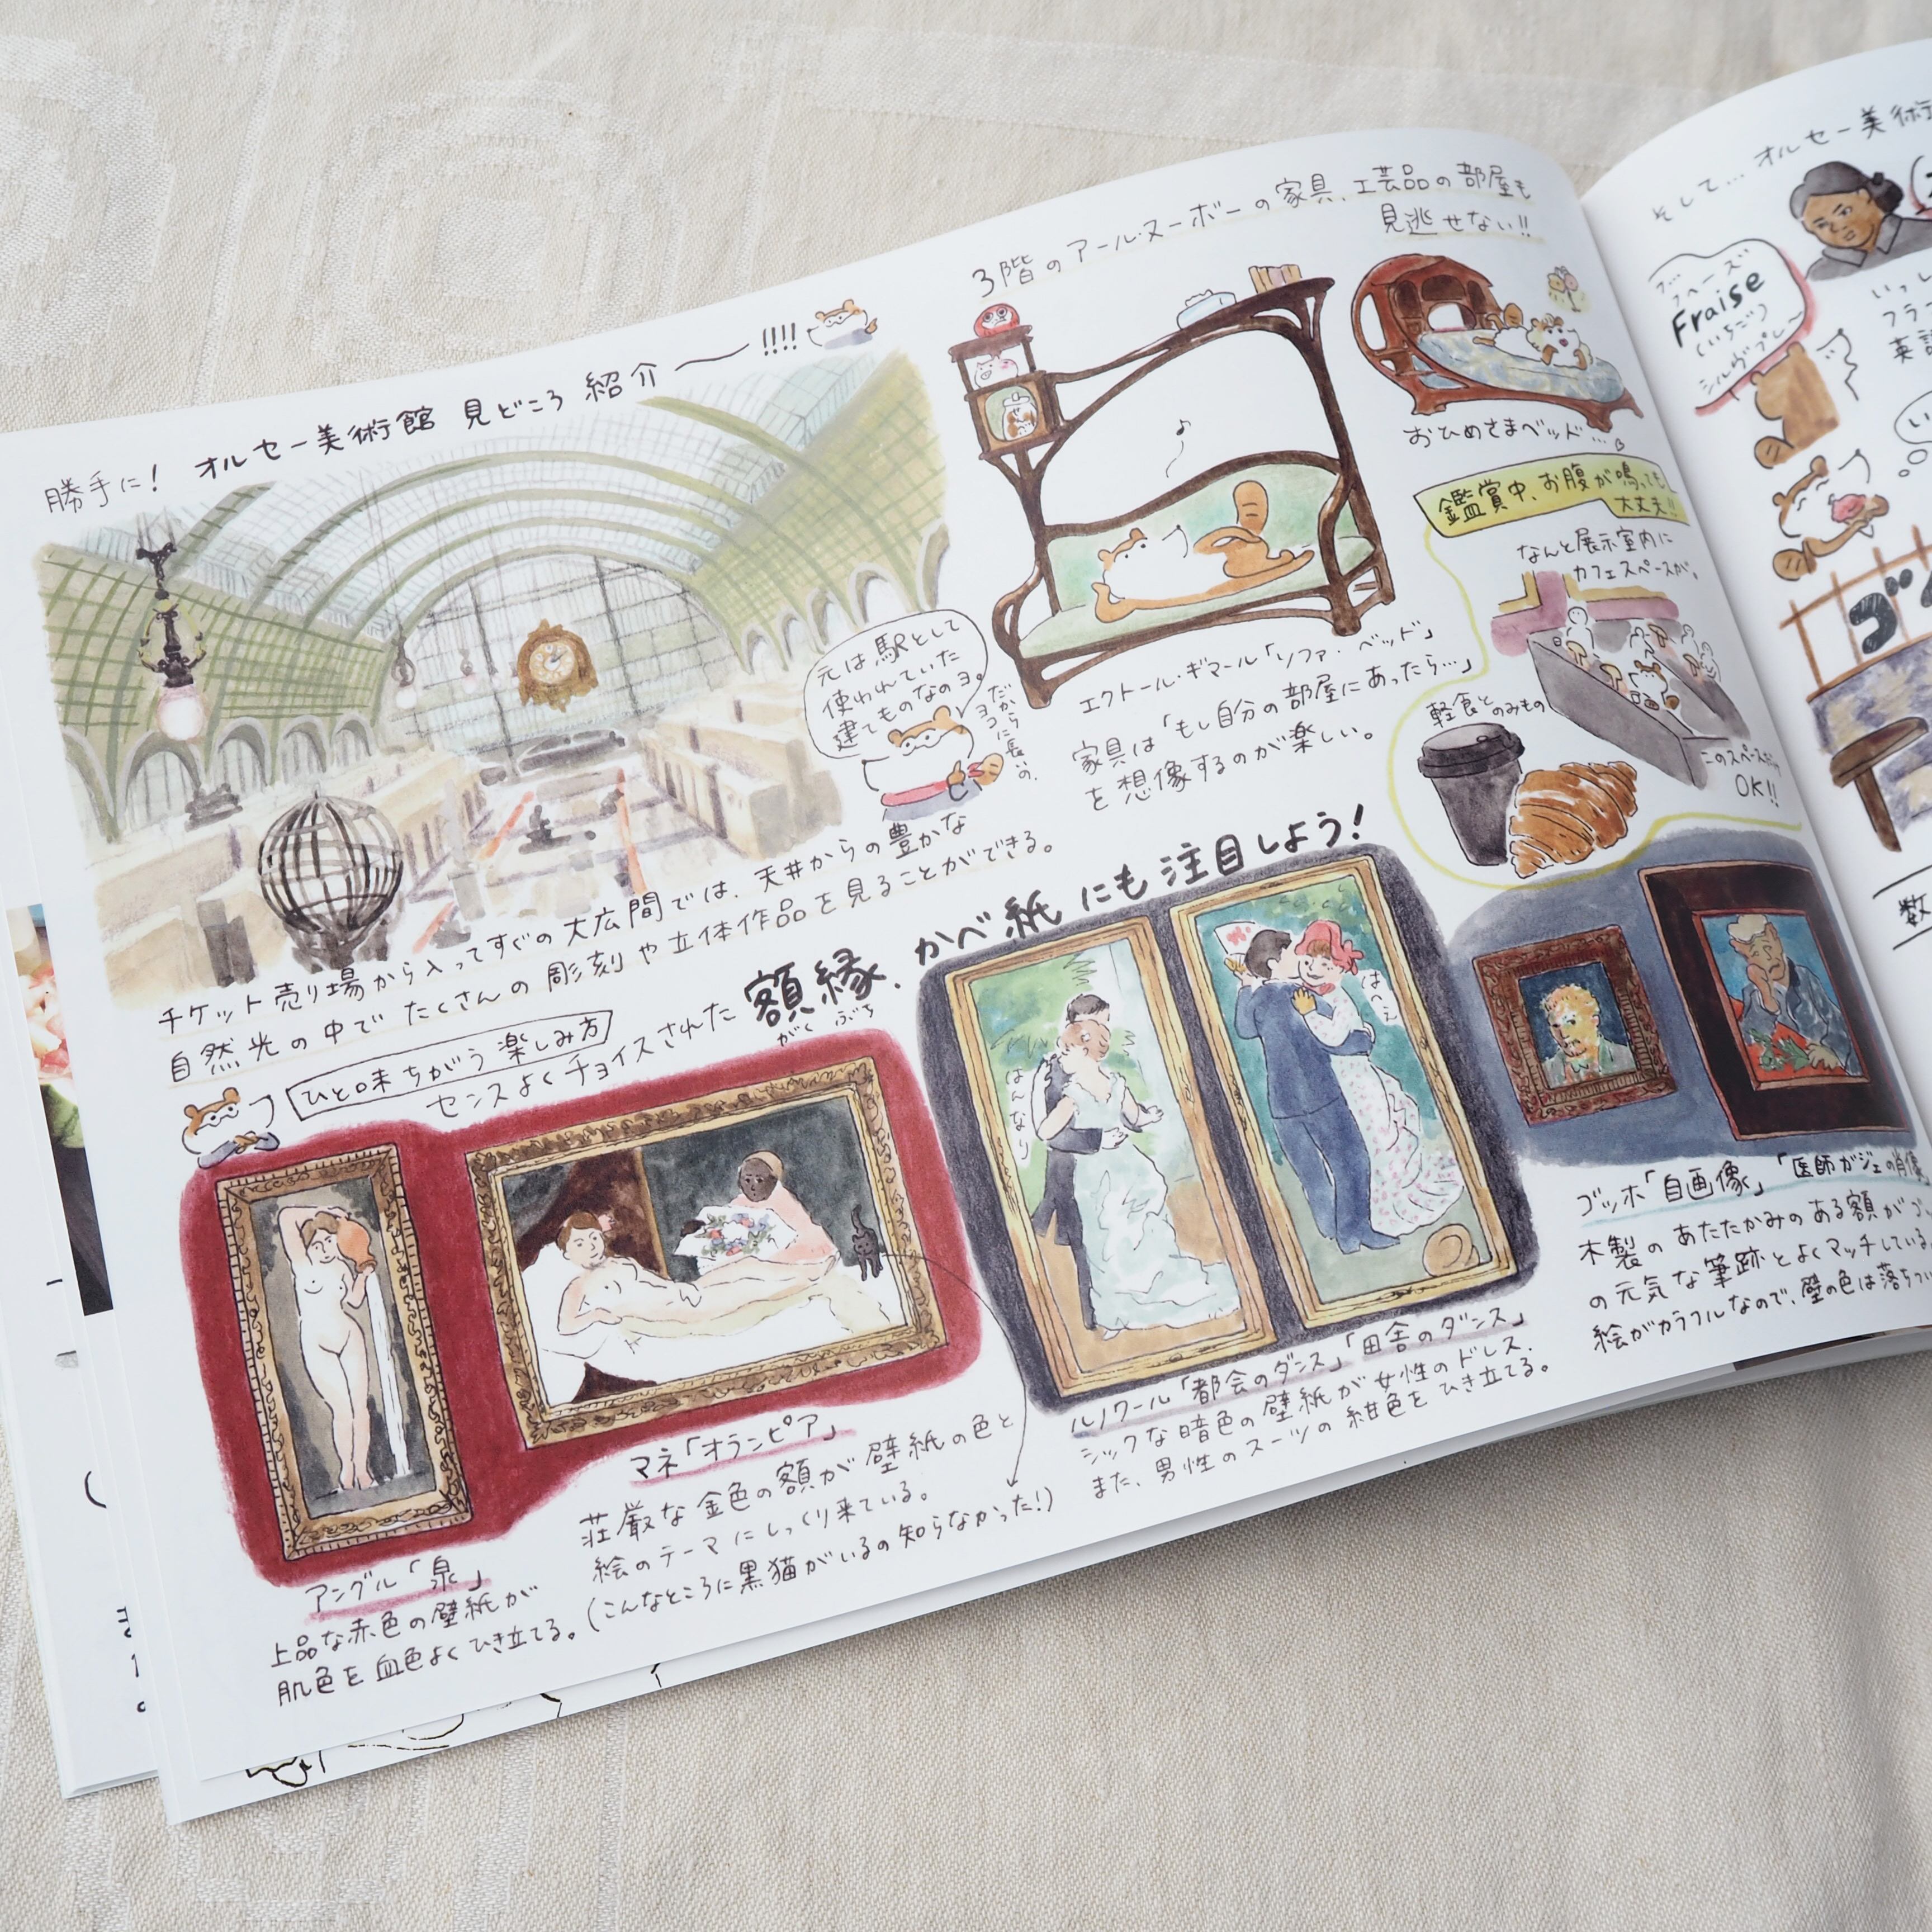 勝手に! オルセー美術館 見どころ 紹介〜!!!!
元は駅として
使われていた
建てものなのヨ。
だから
ヨコに長いの。
チケット売り場から入ってすぐの大広間では、天井からの豊かな
自然光の中で たくさんの彫刻や立体作品を見ることができる。
3階のアール・ヌーボーの家具、工芸品の部屋も
見逃せない!!
エクトール・ギマール「ソファ・ベッド」
家具は「もし自分の部屋にあったら…」
を想像するのが楽しい。
おひめさまベッド…
鑑賞中、お腹が鳴っても
大丈夫!!
なんと展示室内に
カフェスペースが。
軽食とのみもの
OK!!
ひと味ちがう楽しみ方
センスよくチョイスされた 額縁、かべ紙にも注目しよう!
がくぶち
アングル「泉」
上品な赤色の壁紙が
肌色を血色よくひき立てる。
マネ「オランピア」
荘厳な金色の額が壁紙の色と
絵のテーマにしっくり来ている。
(こんなところに黒猫がいるの知らなかった!)
はんなり
ルノワール「都会のダンス」「田舎のダンス」
シックな暗色の壁紙が女性のドレス、
また、男性のスーツの紺色をひき立てる。
ゴッホ「自画像」「医師ガシェの肖像
木製のあたたかみのある額がゴッ
の元気な筆跡とよくマッチしている。
絵がカラフルなので、壁の色は落ちつ
そして…オルセー美術
フレーズ
Fraise
(いちご)
シルヴプレー
いっし
フラン
英語
い
ゴ
数